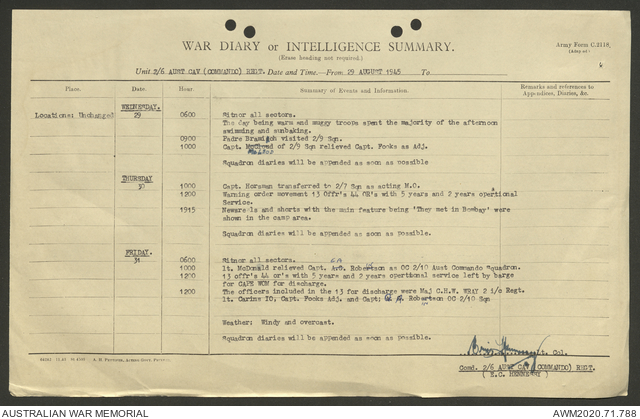 WAR DIARY or INTELLIGENCE SUMMARY.
(Erase heading not required.)
Army Form C.2118.
Unit 2/6 AUST CAV (COMMANDO) REGT. Date and Time.—From 29 AUGUST 1945 To
Place. Date. Hour. Summary of Events and Information. Remarks and references to Appendices, Diaries, &c.
WEDNESDAY.
Locations: Unchanged 29 0600 Sitnor all sectors.
The day being warm and muggy troops spent the majority of the afternoon
swimming and sunbaking.
0900 Padre Bramich visited 2/9 Sqn.
1000 Capt. of 2/9 Sqn relieved Capt. Fooks as Adj.
Squadron diaries will be appended as soon as possible
THURSDAY
30 1000 Capt. Horsman transferred to 2/7 Sqn as acting M.O.
1200 Warning order movement 13 Offr's 44 OR's with 5 years and 2 years opertional
Service.
1915 Newsreels and shorts with the main feature being 'They met in Bombay' were
shown in the camp area.
Squadron diaries will be appended as soon as possible.
FRIDAY.
31 0600 Sitnor all sectors.
1000 Lt. McDonald relieved Capt. Robertson as OC 2/10 Aust Commando Squadron.
1200 13 offr's 44 or's with 5 years and 2 years opertional service left by barge
for CAPE WOM for discharge.
1200 The officers included in the 13 for discharge were Maj C.H.W. WRAY 2 i/c Regt.
Lt. Carine IO, Capt. Fooks Adj. and Capt: Robertson OC 2/10 Sqn
Weather: Windy and overcast.
Squadron diaries will be appended as soon as possible.
Lt. Col.
Comd. 2/6 AUST CAV (COMMANDO) REGT.
( E.C. HENNESSY )
AUSTRALIAN WAR MEMORIAL
AWM2020.71.788